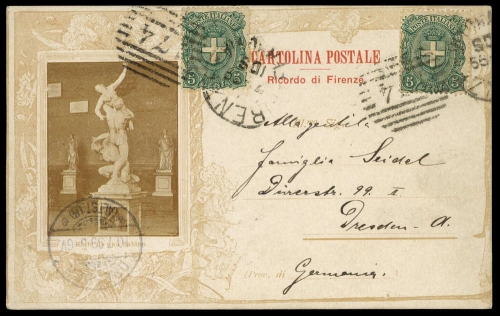 POSTE ITALIANE
5 5
POSTE ITALIANE
5 5
74
74
CARTOLINA POSTALE
Ricordo di Firenze
Alla gentile
famiglia Seidel
Dürerstr. 99 II
Dresden-A.
(Prov. di
Germania.